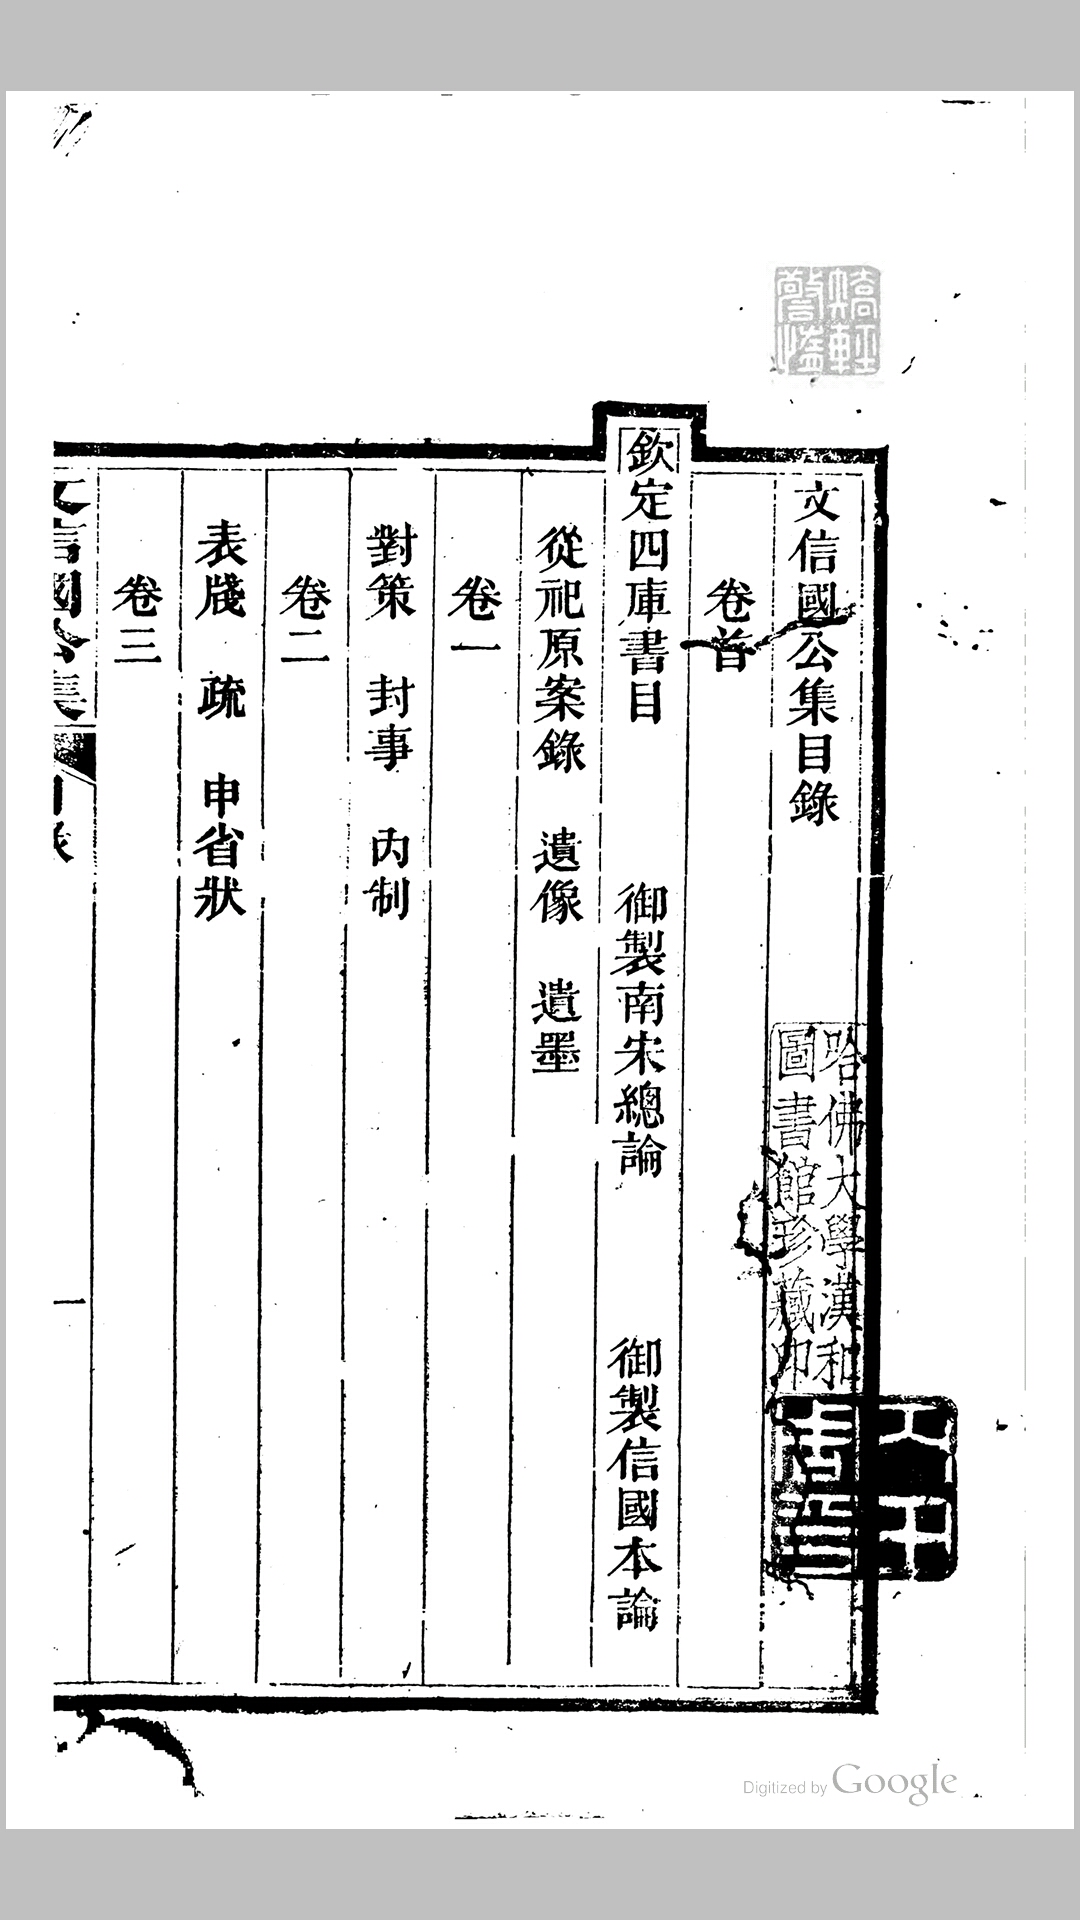 文信國公集目錄
卷首
欽定四庫書目　御製南宋總論　御製信國本論
從祀原案錄　遺像　遺墨
卷一
對策　封事　內制
卷二
表牋　疏　申省狀
卷三
文信國公集　目錄　一
哈佛大學漢和
圖書館珍藏印
Digitized by Google